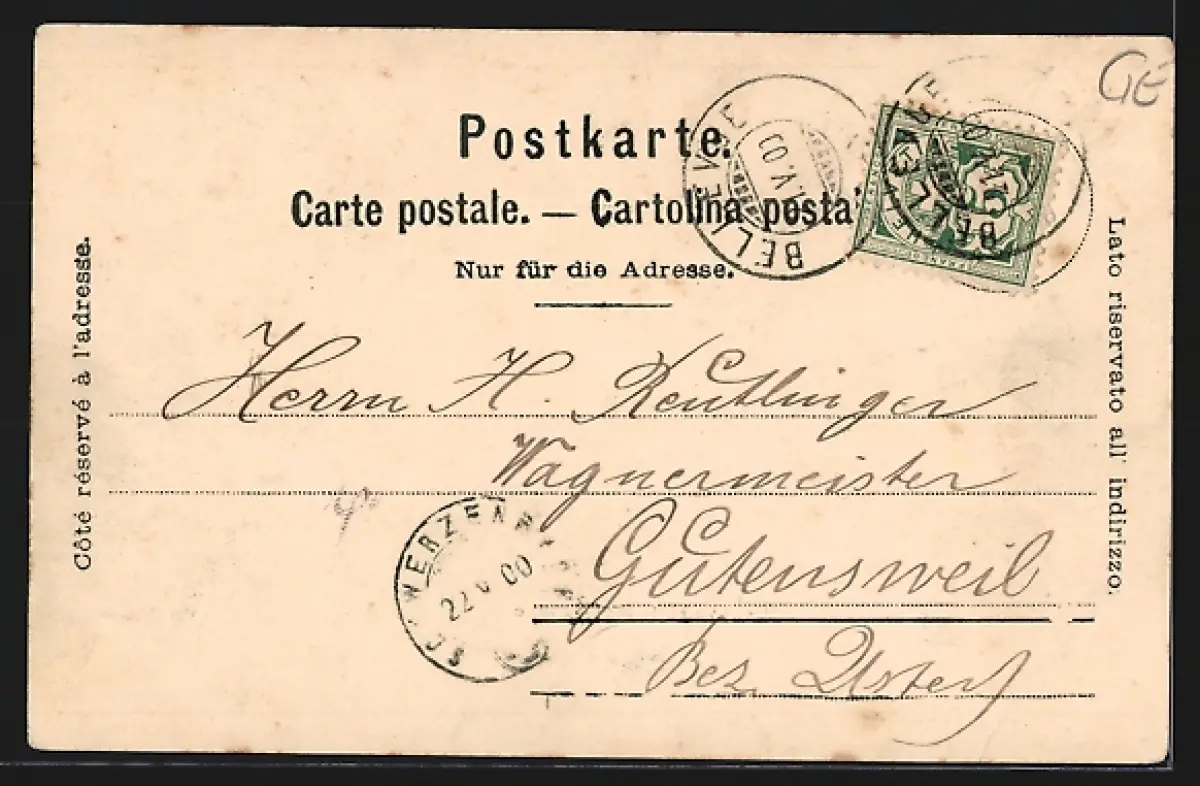 GE
Postkarte.
Carte postale. — Cartolina posta
Nur für die Adresse.
Côté réservé à l'adresse.
Lato riservato all' indirizzo.
BELLEVUE
BELLEVUE
Herrn H. Reutlinger
Wagnermeister
Gutensweil
Bez. Uster
22 V 00